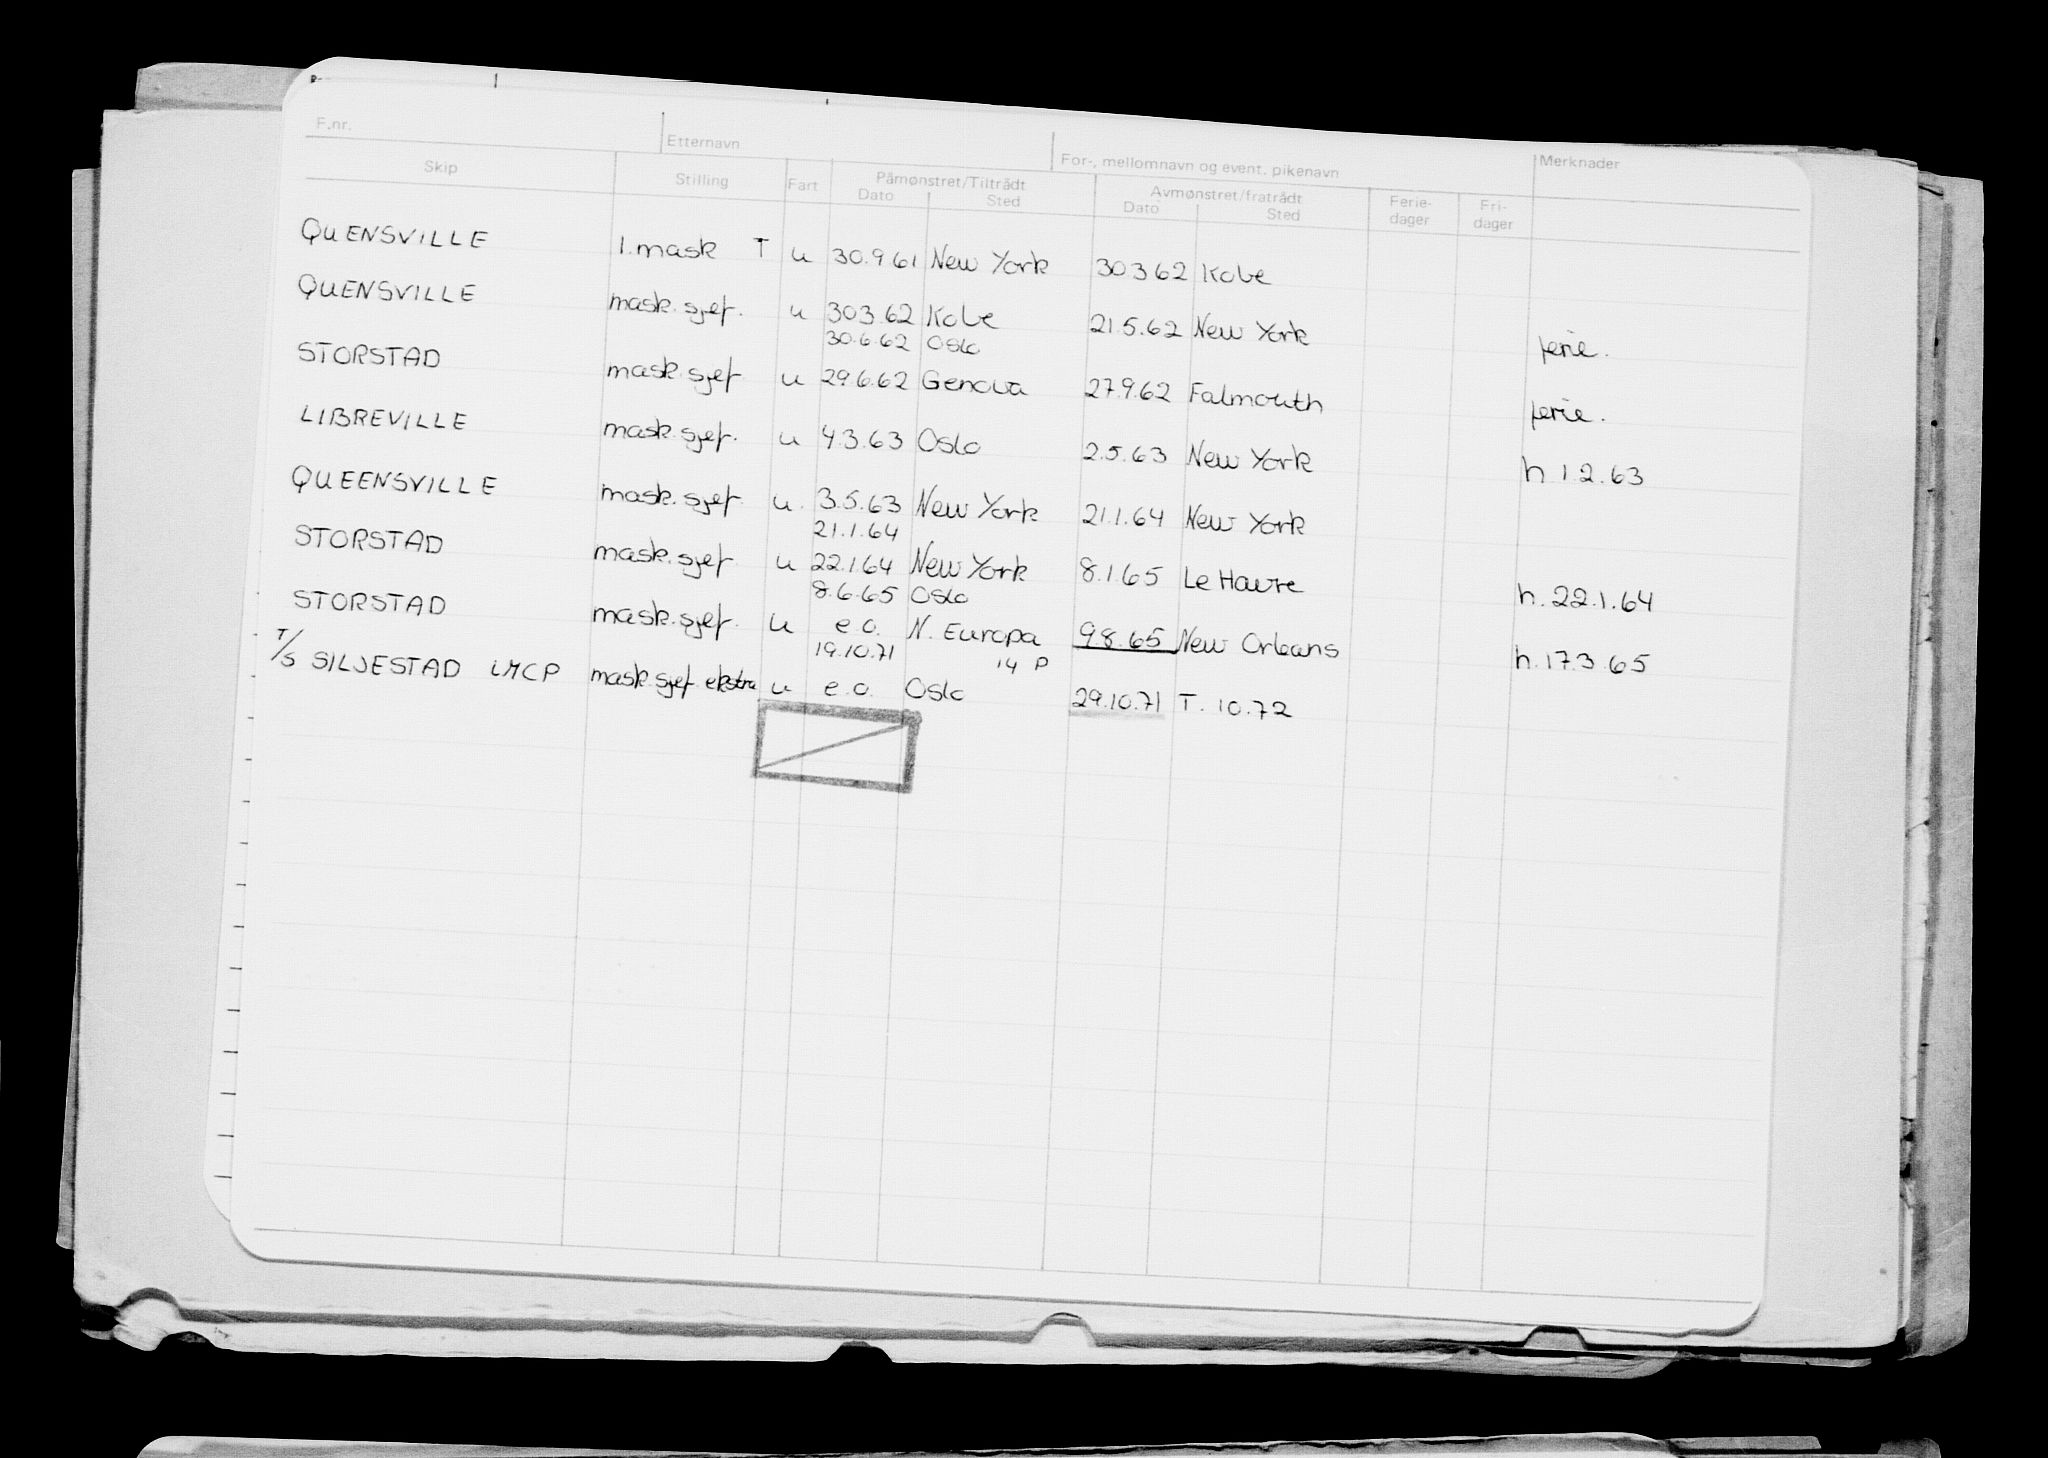 F.nr. Etternavn For-, mellomnavn og event. pikenavn Merknader
Skip Stilling Fart Påmønstret/Tiltrådt Avmønstret/fratrådt Ferie- Fri-
Dato Sted Dato Sted dager dager
QUENSVILLE 1.mask T u 30.9.61 New York 30362 Kobe
QUENSVILLE mask.sjef. u 303.62 Kobe 21.5.62 New York ferie.
30.6.62 Oslo
STORSTAD mask.sjef u 29.6.62 Genova 27.9.62 Falmouth ferie.
LIBREVILLE mask.sjef. u 4.3.63 Oslo 2.5.63 New York h.1.2.63
QUEENSVILLE mask.sjef u. 3.5.63 New York 21.1.64 New York
21.1.64
STORSTAD mask.sjef u 22.1.64 New York 8.1.65 Le Havre h.22.1.64
8.6.65 Oslo
STORSTAD mask.sjef. u e.o. N. Europa 98.65 New Orleans h.17.3.65
19.10.71 14 P
T/S SILJESTAD LMCP mask.sjef ekstra u e.o. Oslo 29.10.71 T. 10.72